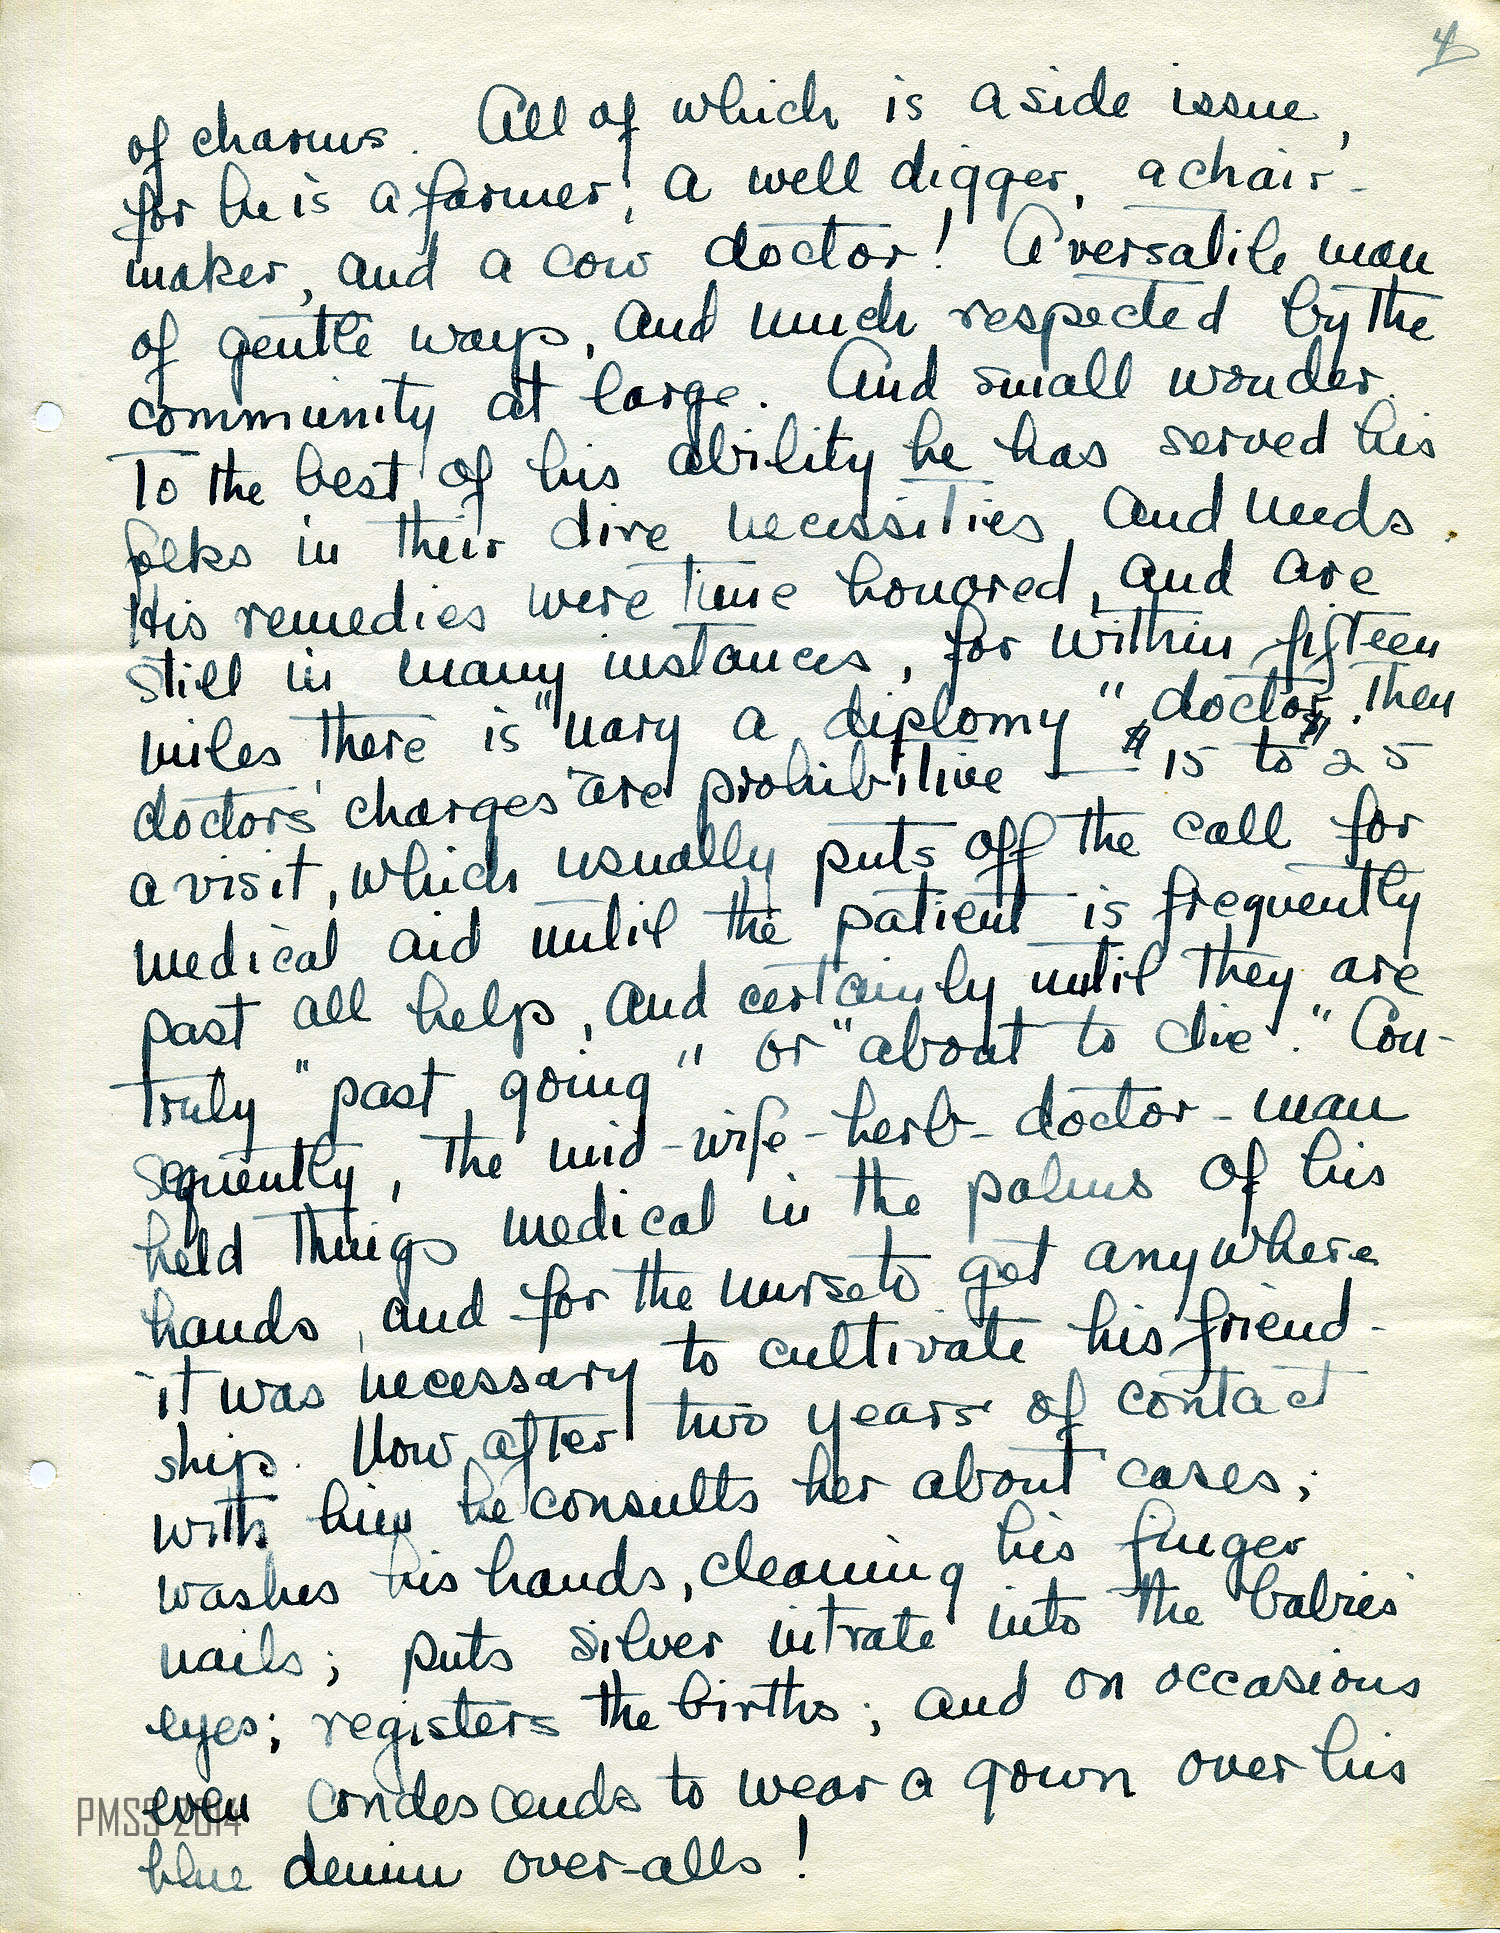 4
of charms. All of which is a side issue,
for he is a farmer, a well digger, a chair-
maker, and a cow doctor! A versatile man
of gentle ways, and much respected by the
community at large. And small wonder.
To the best of his ability he has served his
folks in their dire necessities and needs.
His remedies were time honored, and are
still in many instances, for within fifteen
miles there is "nary a diplomy" doctor. Then
doctors' charges are prohibitive — $15 to $25
a visit, which usually puts off the call for
medical aid until the patient is frequently
past all help, and certainly until they are
truly "past going" or "about to die." Con-
sequently, the mid-wife-herb-doctor-man
held things medical in the palms of his
hands, and for the nurse to get anywhere
it was necessary to cultivate his friend-
ship. Now after two years of contact
with him he consults her about cases;
washes his hands, cleaning his finger
nails; puts silver nitrate into the babies'
eyes; registers the births; and on occasions
even condescends to wear a gown over his
blue denim over-alls!
PMSS 2014